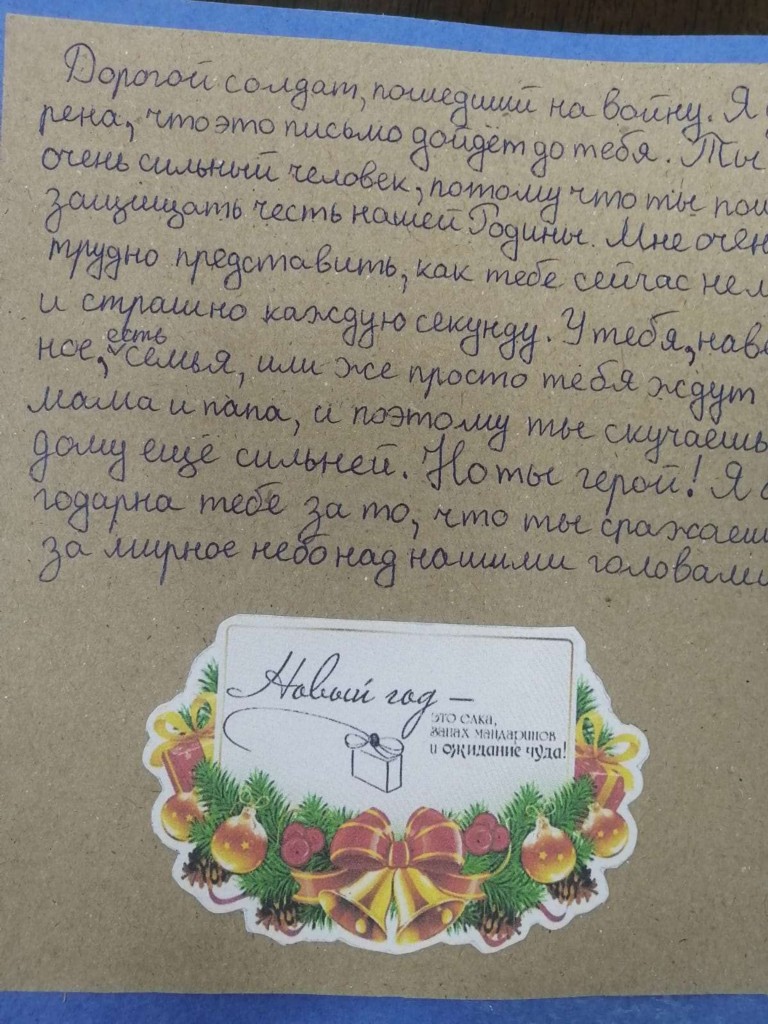 Дорогой солдат, пошедший на войну. Я
рена, что это письмо дойдёт до тебя. Ты
очень сильный человек, потому что ты
защищать честь нашей Родины. Мне
трудно представить, как тебе сейчас
и страшно каждую секунду. У тебя,
ное, есть семья, или же просто тебя ждут
мама и папа, и поэтому ты скучаешь
дому ещё сильней. Но ты герой! Я
годарна тебе за то, что ты
за мирное небо над нашими головами
Новый год —
это ёлка,
запах мандаринов
и ожидание чуда!